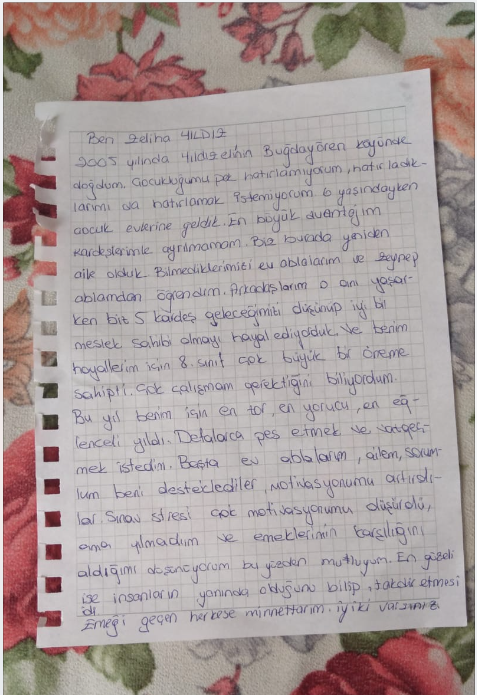 Ben Zeliha YILDIZ
2005 yılında Yıldızelinin Buğdayören köyünde
doğdum. Çocukluğumu pek hatırlamıyorum, hatırladık-
larımı da hatırlamak istemiyorum. 6 yaşındayken
çocuk evlerine geldik. En büyük avantajım
kardeşlerimle ayrılmamam. Biz burada yeniden
aile olduk. Bilmediklerimizi ev ablalarım ve Zeynep
ablamdan öğrendim. Arkadaşlarım o anı yaşar-
ken biz 5 kardeş geleceğimizi düşünüp iyi bir
meslek sahibi olmayı hayal ediyorduk. Ve benim
hayallerim için 8. sınıf çok büyük bi öneme
sahipti. Çok çalışmam gerektiğini biliyordum.
Bu yıl benim için en zor, en yorucu, en eğ-
lenceli yıldı. Defalarca pes etmek ve vazgeç-
mek istedim. Başta ev ablalarım, ailem, sorum-
lum beni desteklediler, motivasyonumu artırdı-
lar. Sınav stresi çok motivasyonumu düşürdü,
ama yılmadım ve emeklerimin karşılığını
aldığımı düşünüyorum bu yüzden mutluyum. En güzeli
ise insanların yanında olduğunu bilip, takdir etmesi
idi
Emeği geçen herkese minnettarım. iyiki varsınız